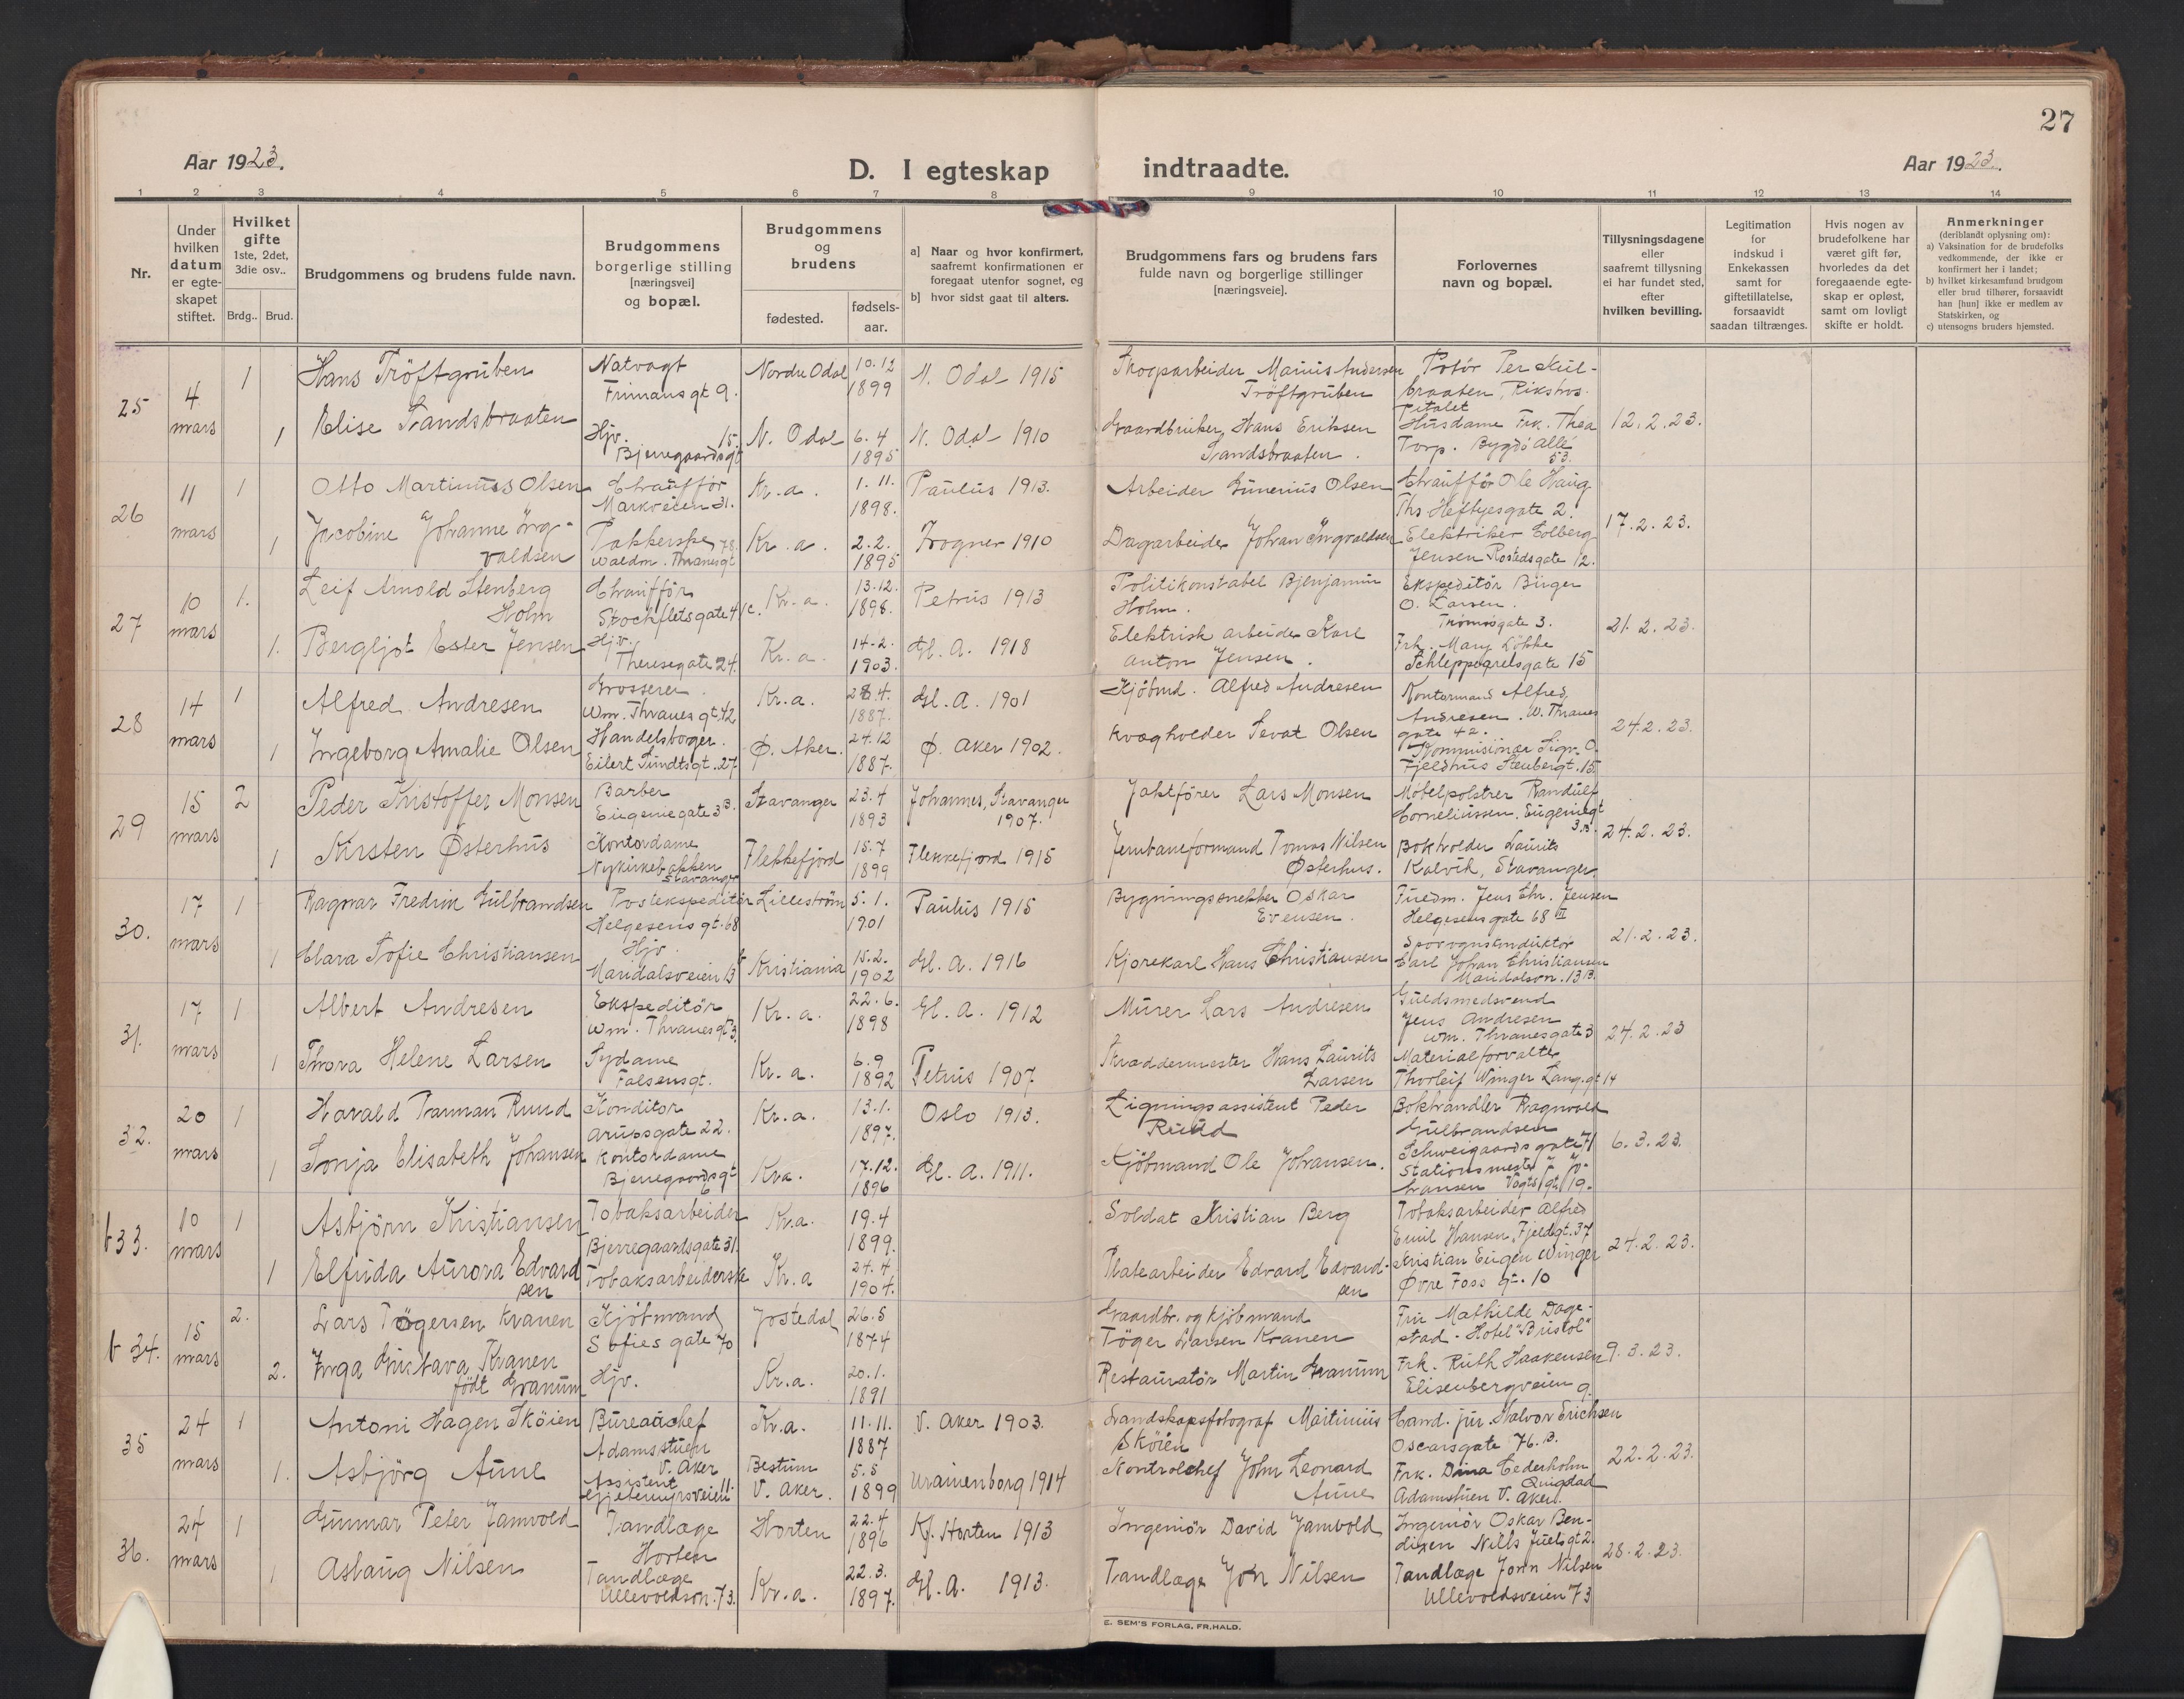 27
Aar 1923.
D. I egteskap indtraadte.
Aar 1923.
1 2 3 4 5 6 7 8 9 10 11 12 13 14
Nr.
Under
hvilken
datum
er egte-
skapet
stiftet.
Hvilket
gifte
1ste, 2det,
3die osv..
Brdg.. Brud.
Brudgommens og brudens fulde navn.
Brudgommens
borgerlige stilling
[næringsvei]
og bopæl.
Brudgommens
og
brudens
fødested.
fødsels-
aar.
a] Naar og hvor konfirmert,
saafremt konfirmationen er
foregaat utenfor sognet, og
b] hvor sidst gaat til alters.
Brudgommens fars og brudens fars
fulde navn og borgerlige stillinger
[næringsveie].
Forlovernes
navn og bopæl.
Tillysningsdagene
eller
saafremt tillysning
ei har fundet sted,
efter
hvilken bevilling.
Legitimation
for
indskud i
Enkekassen
samt for
giftetillatelse,
forsaavidt
saadan tiltrænges.
Hvis nogen av
brudefolkene har
været gift før,
hvorledes da det
foregaaende egte-
skap er opløst,
samt om lovligt
skifte er holdt.
Anmerkninger
(deriblandt oplysning om):
a) Vaksination for de brudefolks
vedkommende, der ikke er
konfirmert her i landet;
b) hvilket kirkesamfund brudgom
eller brud tilhører, forsaavidt
han [hun] ikke er medlem av
Statskirken, og
c) utensogns bruders hjemsted.
25
4
mars
1
Hans Tröftgruben
Natvagt
Frimansgt 9.
Nordre Odal
10.12
1899
N. Odal 1915
Skogsarbeider Marius Andersen
Tröftgruben
Potör Per Kul-
braaten, Rikshos-
pitalet
1
Elise Sandsbraaten
Hjv. 15.
Bjerregaardsgt
N. Odal
6.4
1895
N. Odal 1910
Gaardbruker Hans Eriksen
Sandsbraaten.
Husdame Frk. Thea
Torp. Bygdö Allé
53.
12.2.23.
26
11
mars
1
Otto Martinuss Olsen
Chauffør
Markveien 31.
Kr.a.
1.11.
1898.
Paulus 1913.
Arbeider Gunerius Olsen
Chauffør Ole Haug
Ths Heftyesgate 2.
1
Jacobine Johanne Ing-
valdsen
Pakkerske 78.
Waldm. Thranesgt
Kr.a.
2.2.
1895
Frogner 1910
Dagarbeider Johan Ingvaldsen
Elektriker Solberg
Jensen Rostedsgate 12.
17.2.23.
27
10
mars
1.
Leif Arnold Stenberg
Holm
Chauffør
Stockfletsgate 41c.
Kr.a.
13.12.
1898.
Petrus 1913
Politikonstabel Bjenjamin
Holm.
Ekspeditör Birger
O. Larsen.
Tromsögate 3.
1.
Bergljot Ester Jensen
Hjv.
Theresegate 24.
Kr.a.
14.2.
1903.
Gl. A. 1918
Elektrisk arbeider Karl
Anton Jensen.
Frk. Mary Løkke
Schleppegrelsgate 15
21.2.23.
28
14
mars
1
Alfred Andresen
Grosserer.
Wm. Thranes gt. 42
Kr.a.
28.4.
1887.
Gl. A. 1901
Kjöbmd. Alfred Andresen
Kontormand Alfred
Andresen. W. Thranes
gate 42.
1
Ingeborg Amalie Olsen
Handelsborger.
Eilert Sundtsgt. 27
Ø. Aker.
24.12
1887.
Ø. Aker 1902.
Kvægholder Sevat Olsen
Kommisionær Sigv. O.
Fjeldhus Stenbergt. 15
24.2.23.
29
15
mars
2
Peder Kristoffer Monsen
Barber
Eugeniegate 3B.
Stavanger
23.4
1893
Johannes, Stavanger
1907.
Jaktfører Lars Monsen
Møbelpolstrer Randulf
Corneliussen. Eugeniegt
3B.
1
Kirsten Østerhus
Kontordame
Nykirkebakken
Stavanger
Flekkefjord
15.7
1899
Flekkefjord 1915
Jernbaneformand Tomas Nilsen
Østerhus.
Bokholder Laurits
Kalvik, Stavanger
24.2.23.
30.
17
mars
1
Ragnar Fredrik Gulbrandsen
Postekspeditör
Helgesens gt. 68
Lillestrøm
5.1.
1901
Paulus 1915
Bygningssnekker Oskar
Evensen.
Fuldm. Jens Chr. Jensen
Helgesens gate 68 III
1
Clara Sofie Christiansen
Hjv.
Maridalsveien 13
Kristiania
15.2.
1902
Gl. A. 1916
Kjørekarl Hans Christiansen
Sporvognskonduktör
Carl Johan Christiansen
Maridalsvn. 13B.
21.2.23.
31.
17
mars
1
Albert Andresen
Ekspeditör
Wm. Thranesgt 3.
Kr.a.
22.6.
1898
Gl. A. 1912
Murer Lars Andresen
Guldsmedsvend
Jens Andresen
Wm. Thranesgate 3
1
Thora Helene Larsen
Sydame
Falsensgt.
Kr.a.
6.9
1892
Petrus 1907
Skræddermester Hans Laurits
Larsen
Materialforvalter
Thorleif Winger Langgt 14
24.2.23
32.
20
mars
1
Harald Ruud
Konditor
Arupsgate 22.
Kr.a.
13.1.
1897.
Oslo 1913.
Ligningsassistent Peder
Ruud
Bokhandler Ragnvald
Gulbrandsen
Schweigaards gate 71
1
Sonja Elisabeth Johansen
Kontordame
Bjerregaardsgt
6
Kra.
17.12.
1896
Gl. A. 1911.
Kjöbmand Ole Johansen.
Stationsmester J. Jo-
hansen Vogts gt. 19.
6.3.23.
b 33.
10
mars
1
Asbjörn Kristiansen
Tobaksarbeider
Bjerregaardsgate 31.
Kr.a.
19.4
1899.
Soldat Kristian Berg
Tobaksarbeider Alfred
Emil Hansen, Fjeldgt. 37
1
Elfrida Aurora Edvard
sen
Tobaksarbeiderske
Kr.a
24.4
1904.
Platearbeider Edvard Edvard-
sen
Kristian Eugen Winger
Øvre Foss gt. 10
24.2.23.
b 34.
15
mars
2.
Lars Tögersen Kranen
Kjöbmand
Sofies gate 70
Jostedal
26.5
1874
Gaardbr. og kjöbmand
Töger Larsen Kranen
Fru Mathilde Dage-
stad - Hotel "Bristol"
2.
Inga Gustava Kranen
födt Granum
Hjv.
Kr.a.
20.1.
1891
Restauratör Martin Granum
Frk. Ruth Haakensen
Elisenbergveien 9.
9.3.23.
35
24
mars
1
Antoni Hagen Sköien
Bureauchef
Adamsstuen
V. Aker
Kr.a.
11.11.
1887
V. Aker 1903.
Landskapsfotograf Martinius
Sköien
Cand. jur. Halvor Erichsen
Oscarsgate 76.B.
1.
Asbjörg Aune
Assistent
Gjetemyrsveien 11.
Bestum
V. Aker.
5.5
1899
Uranienborg 1914
Kontrolchef John Leonard
Aune
Frk. Dina Cederholm
Quigstad
Adamstuen V. Aker.
22.2.23.
36.
24
mars
1
Gunnar Peter Jamvold
Tandlæge
Horten
Horten
22.4
1896
Kf. Horten 1913
Ingeniör David Jamvold
Ingeniör Oskar Ben-
dixen Nills Juels gt 2.
1
Aslaug Nilsen
Tandlæge
Ullevoldsvn. 73.
Kr.a.
22.3.
1897.
Gl. A. 1913.
Tandlæge Jon Nilsen
Tandlæge John Nilsen
Ullevoldsveien 73
28.2.23.
E. SEM'S FORLAG, FR.HALD.